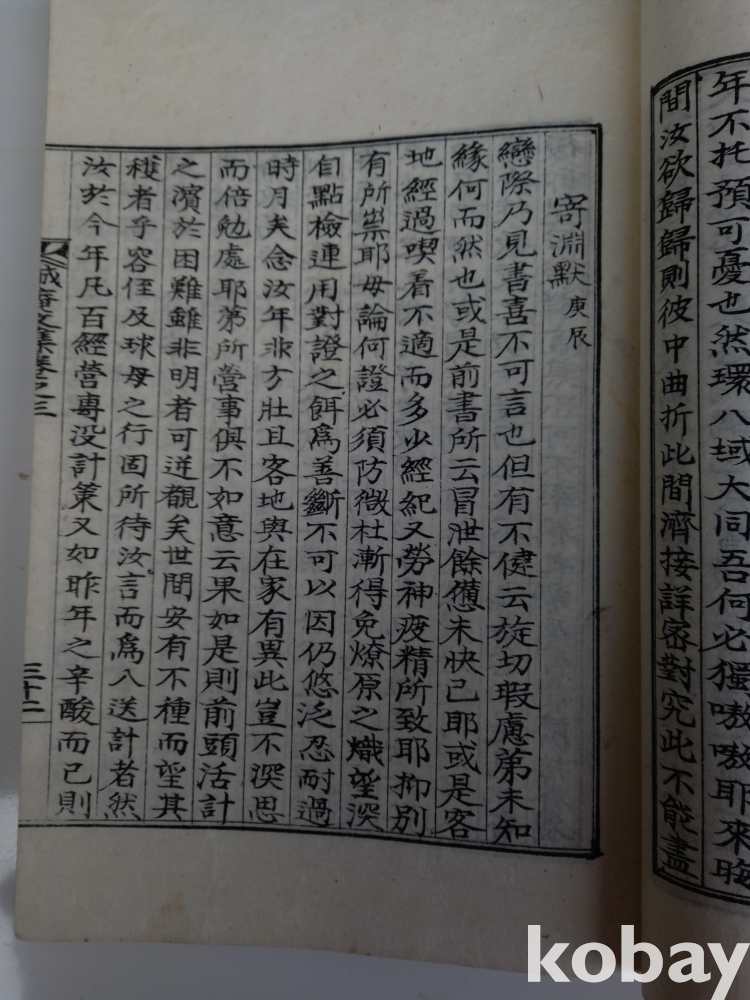 年不托預可憂也然環八域大同吾何必獨嗷嗷耶來晦
間汝欲歸歸則彼中曲折此間濟接詳密對究此不能盡
寄淵默 庚辰
戀際乃見書喜不可言也但有不健云旋切瑕慮第未知
緣何而然也或是前書所云冒泄餘憊未快已耶或是客
地經過喫着不適而多少經紀又勞神疲精所致耶抑別
有所祟耶毋論何證必須防微杜漸得免燎原之熾望深
自點檢連用對證之餌爲善斷不可以因仍悠泛忍耐過
時月矣念汝年非方壯且客地與在家有異此豈不深思
而倍勉處耶第所營事俱不如意云果如是則前頭活計
之濱於困難雖非明者可逆覩矣世間安有不種而望其
穫者乎容侄及球母之行固所待汝言而爲入送計者然
汝於今年凡百經營專没計策又如昨年之辛酸而已則
誠庵文集卷之三
三十二
kobay